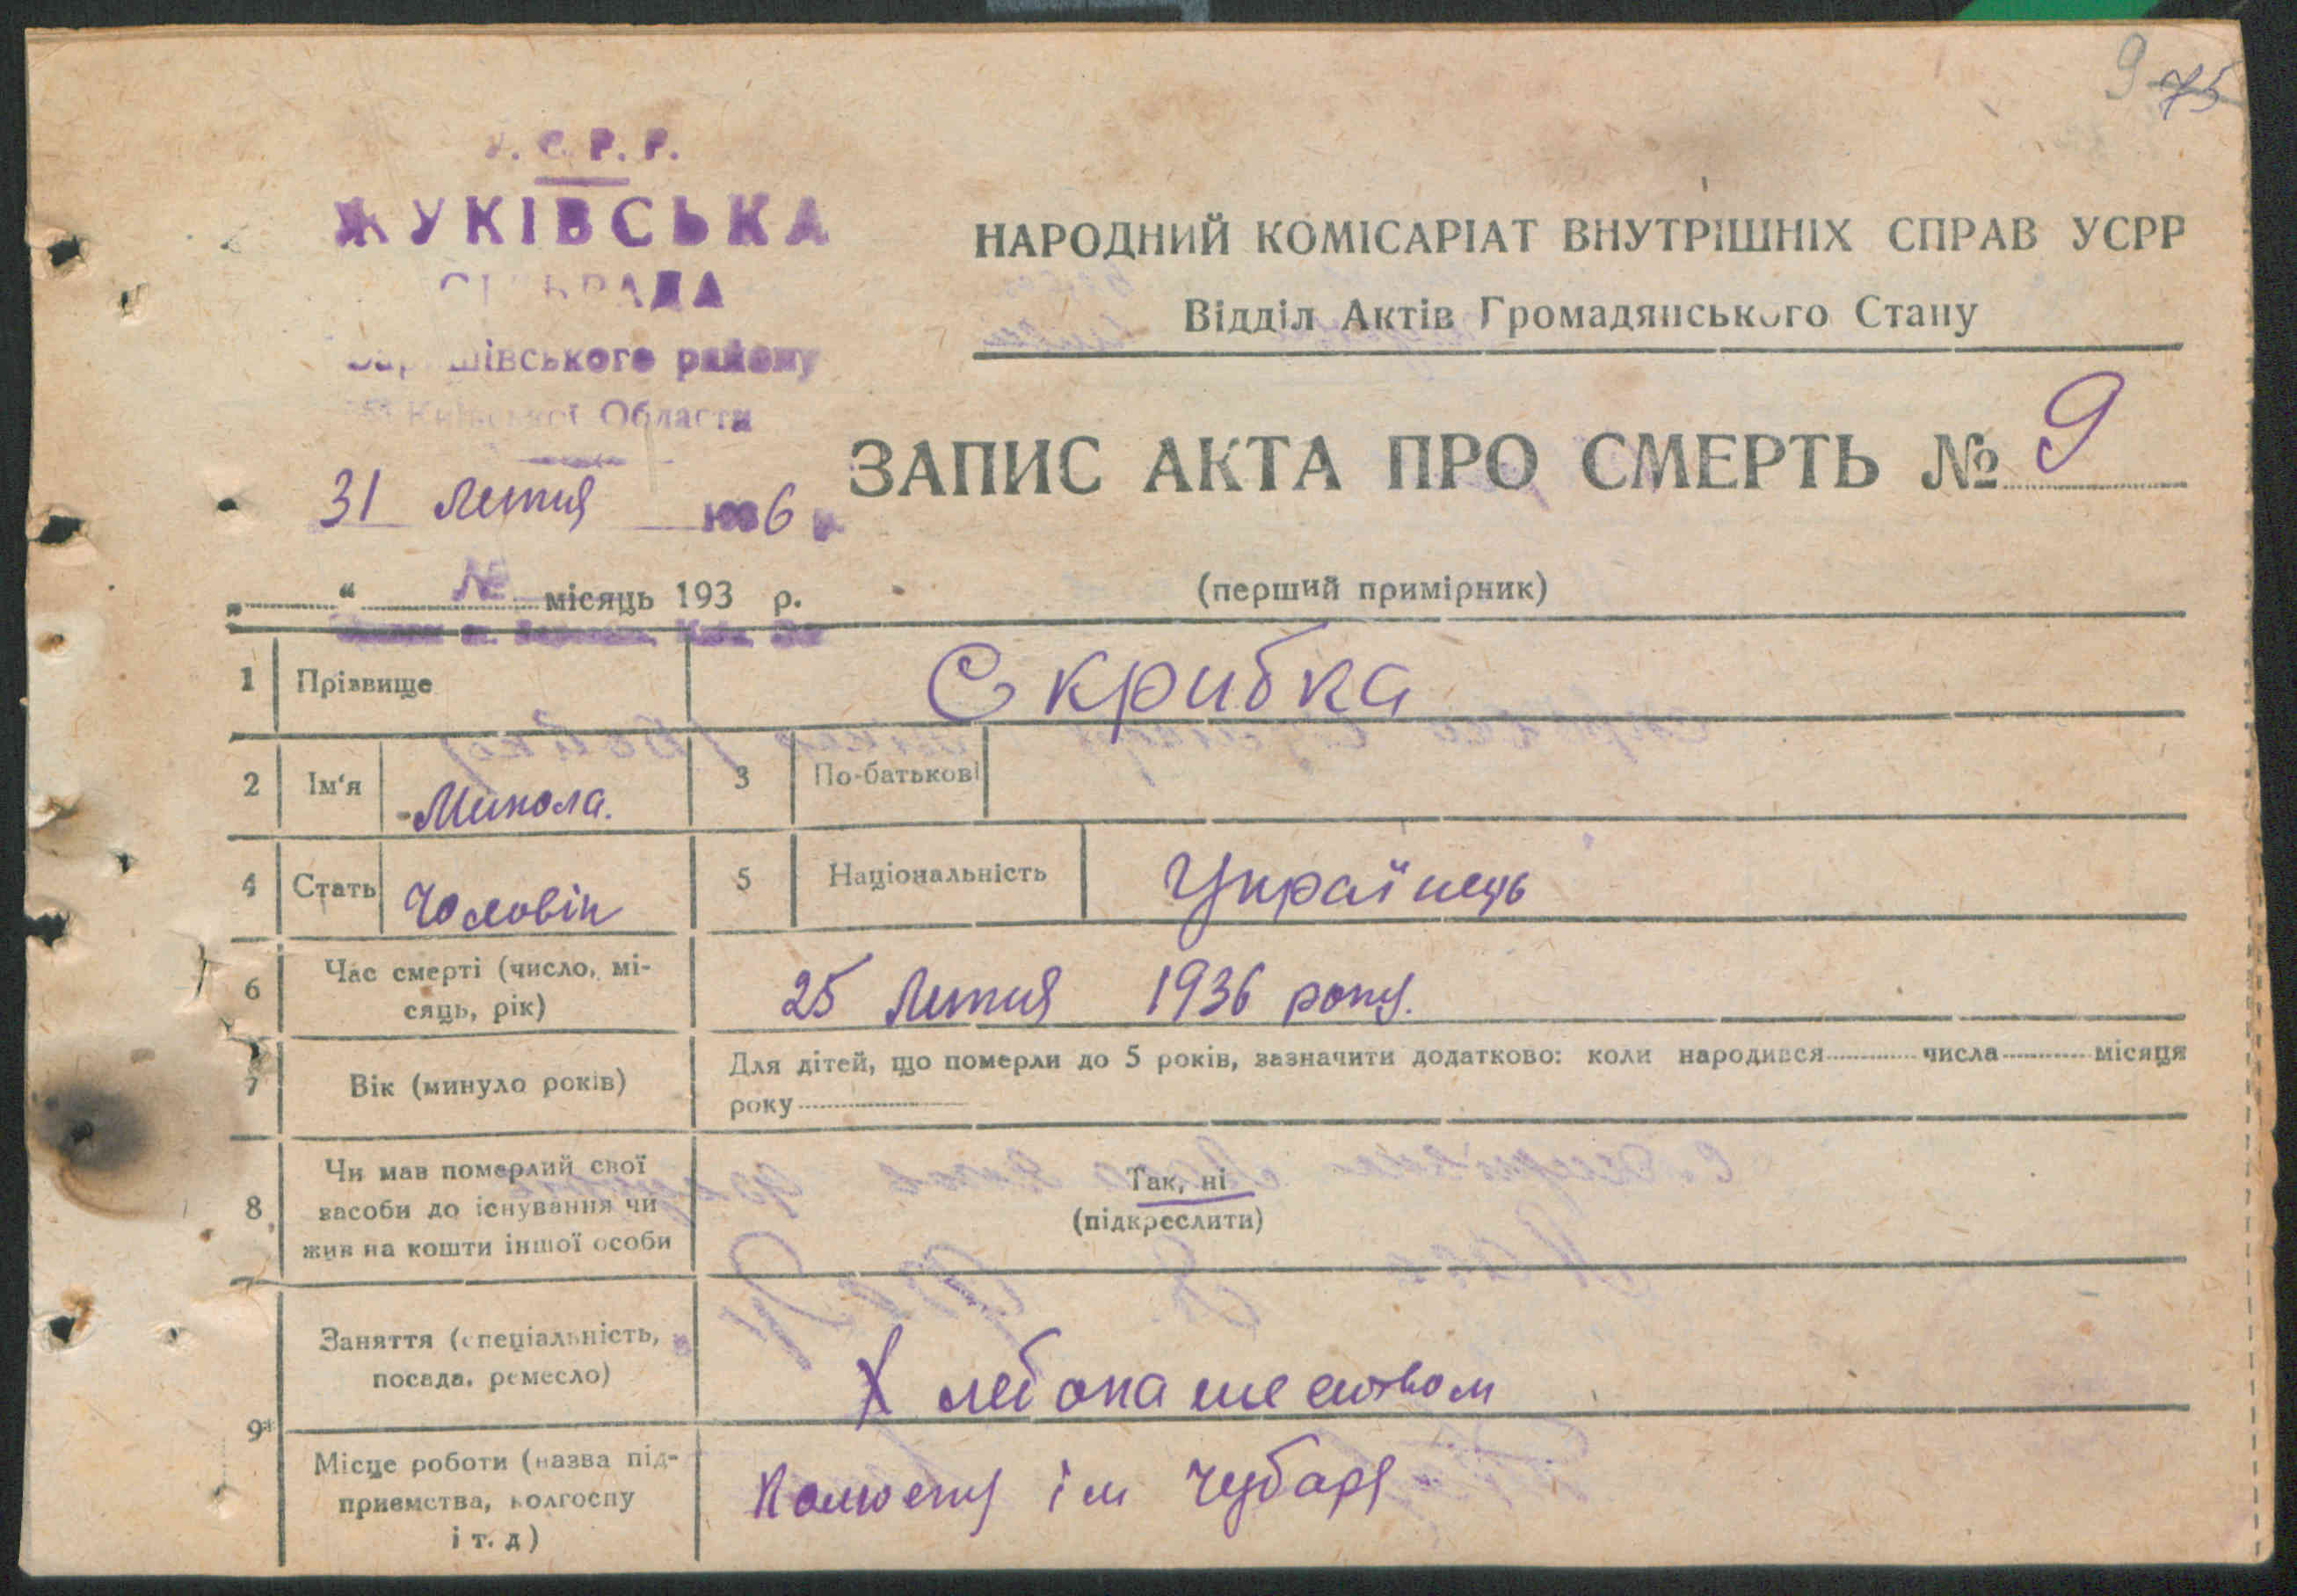 9 75
У. С. Р. Р.
ЖУКІВСЬКА
СІЛЬРАДА
району
Київської Области
31 Липня 1936 р.
№
НАРОДНИЙ КОМІСАРІАТ ВНУТРІШНІХ СПРАВ УСРР
Відділ Актів Громадянського Стану
ЗАПИС АКТА ПРО СМЕРТЬ № 9
„ “ місяць 193 р.
(перший примірник)
1 Прізвище Скрибка
2 Ім‘я Микола. 3 По-батькові
4 Стать Чоловік 5 Національність Українець
6 Час смерті (число, мі-
сяць, рік) 25 Липня 1936 року.
7 Вік (минуло років) Для дітей, що померли до 5 років, зазначити додатково: коли народився числа місяця
року
8 Чи мав померлий свої
засоби до існування чи
жив на кошти іншої особи
Так, ні
(підкреслити)
9 Заняття (спеціальність,
посада, ремесло) Хлебопашеством
Місце роботи (назва під-
приємства, колгоспу
і т. д) ім Чубаря